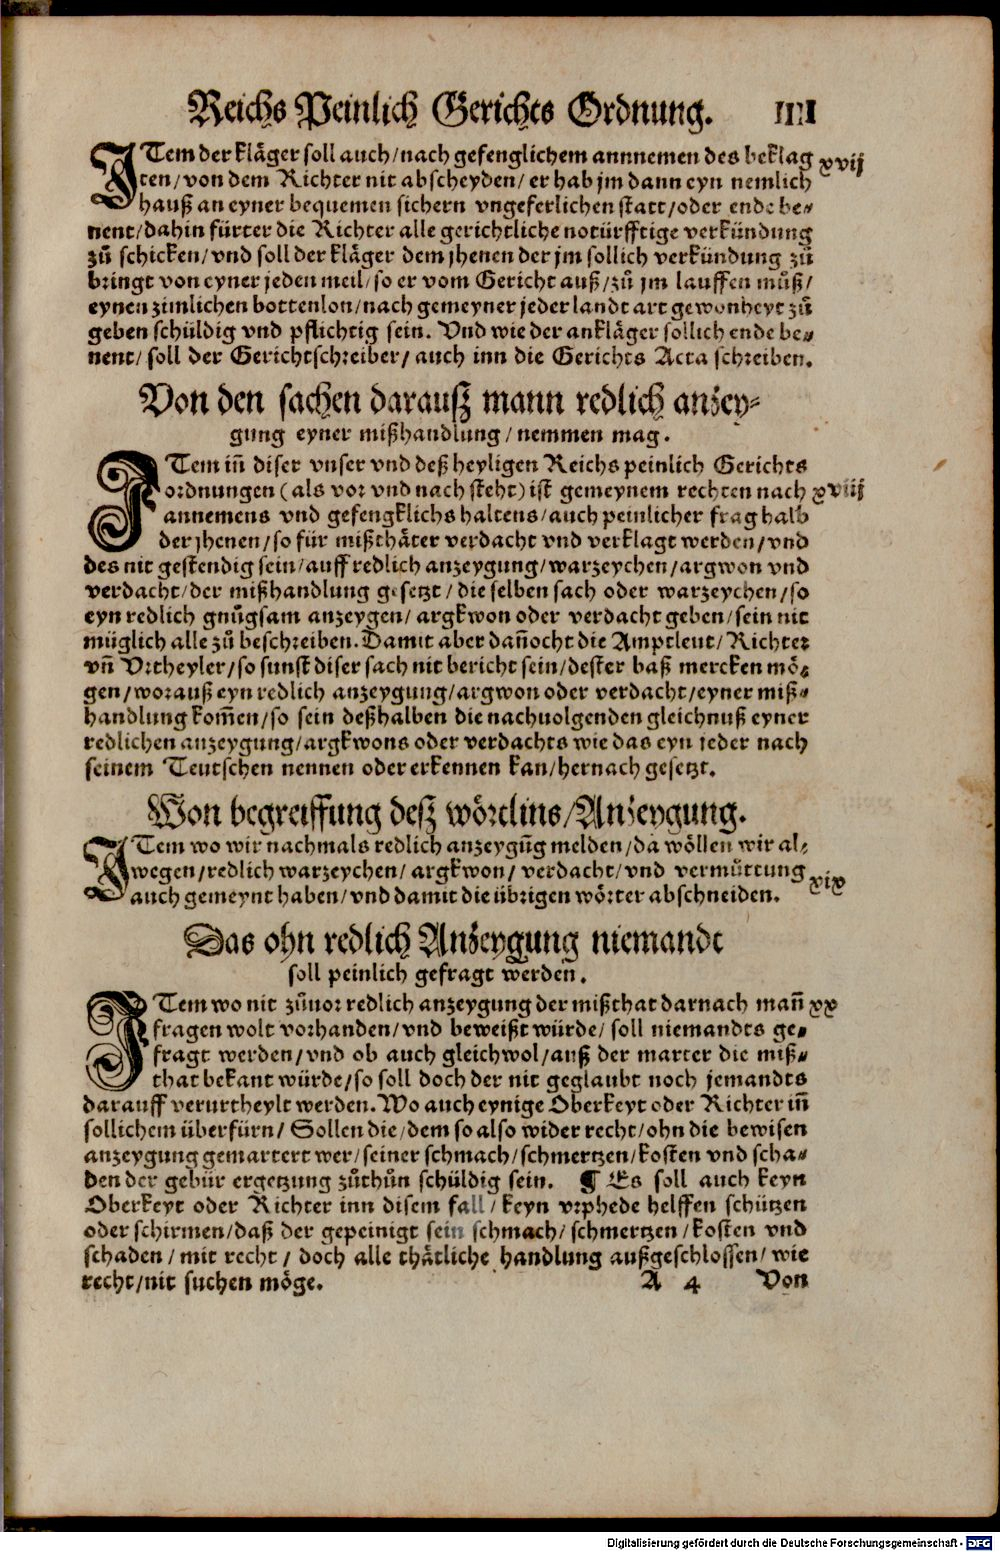 Reichs Peinlich Gerichts Ordnung. IIII
ITem der kläger soll auch/nach gefenglichem annnemen des beklag xvij
ten/von dem Richter nit abscheyden/er hab jm dann eyn nemlich
hauß an eyner bequemen sichern vngeferlichen statt/oder ende be-
nent/dahin fürter die Richter alle gerichtliche notürfftige verkündung
zů schicken/vnd soll der kläger dem jhenen der jm sollich verkündung zů
bringt von eyner jeden meil/so er vom Gericht auß/zů jm lauffen můß/
eynen zimlichen bottenlon/nach gemeyner jeder landt art gewonheyt zů
geben schüldig vnd pflichtig sein. Vnd wie der ankläger sollich ende be-
nent/soll der Gerichtschreiber/auch inn die Gerichts Acta schreiben.
Von den sachen darausz mann redlich anzey-
gung eyner mißhandlung/nemmen mag.
ITem iñ diser vnser vnd deß heyligen Reichs peinlich Gerichts
ordnungen (als vor vnd nach steht) ist gemeynem rechten nach xviij
annemens vnd gefengklichs haltens/auch peinlicher frag halb
der jhenen/so für mißthäter verdacht vnd verklagt werden/vnd
des nit gestendig sein/auff redlich anzeygung/warzeychen/argwon vnd
verdacht/der mißhandlung gesetzt/die selben sach oder warzeychen/so
eyn redlich gnůgsam anzeygen/argkwon oder verdacht geben/sein nit
müglich alle zů beschreiben. Damit aber dañocht die Amptleut/Richter
vñ Vrtheyler/so sunst diser sach nit bericht sein/dester baß mercken mö-
gen/worauß eyn redlich anzeygung/argwon oder verdacht/eyner miß-
handlung kom̃en/so sein deßhalben die nachuolgenden gleichnuß eyner
redlichen anzeygung/argkwons oder verdachts wie das eyn jeder nach
seinem Teutschen nennen oder erkennen kan/hernach gesetzt.
Von begreiffung desz wörtlins/Anzeygung.
ITem wo wir nachmals redlich anzeygũg melden/da wöllen wir al-
wegen/redlich warzeychen/argkwon/verdacht/vnd vermůttung xix
auch gemeynt haben/vnd damit die übrigen wörter abschneiden.
Das ohn redlich Anzeygung niemandt
soll peinlich gefragt werden.
ITem wo nit zůuor redlich anzeygung der mißthat darnach mañ xx
fragen wolt vorhanden/vnd beweißt würde/soll niemandts ge-
fragt werden/vnd ob auch gleichwol/auß der marter die miß-
that bekant würde/so soll doch der nit geglaubt noch jemandts
darauff verurtheylt werden. Wo auch eynige Oberkeyt oder Richter iñ
sollichem überfürn/Sollen die/dem so also wider recht/ohn die bewisen
anzeygung gemartert wer/seiner schmach/schmertzen/kosten vnd scha-
den der gebür ergetzung zůthůn schüldig sein. ¶ Es soll auch keyn
Oberkeyt oder Richter inn disem fall/keyn vrphede helffen schützen
oder schirmen/daß der gepeinigt sein schmach/schmertzen/kosten vnd
schaden/mit recht/doch alle thätliche handlung außgeschlossen/wie
recht/nit suchen möge. A 4 Von
Digitalisierung gefördert durch die Deutsche Forschungsgemeinschaft - DFG